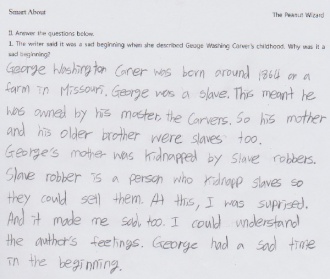 Smart About
The Peanut Wizard
II. Answer the questions below.
1. The writer said it was a sad beginning when she described George Washing Carver's childhood. Why was it a
sad beginning?
George Washington Carver was born around 1864 on a
farm in Missouri. George was a slave. This meant he
was owned by his master, the Carvers. So his mother
and his older brother were slaves too.
George's mother was kidnapped by slave robbers.
Slave robber is a person who kidnapp slaves so
they could sell them. At this, I was suprised.
And it made me sad, too. I could understand
the author's feelings. George had a sad time
in the beginning.